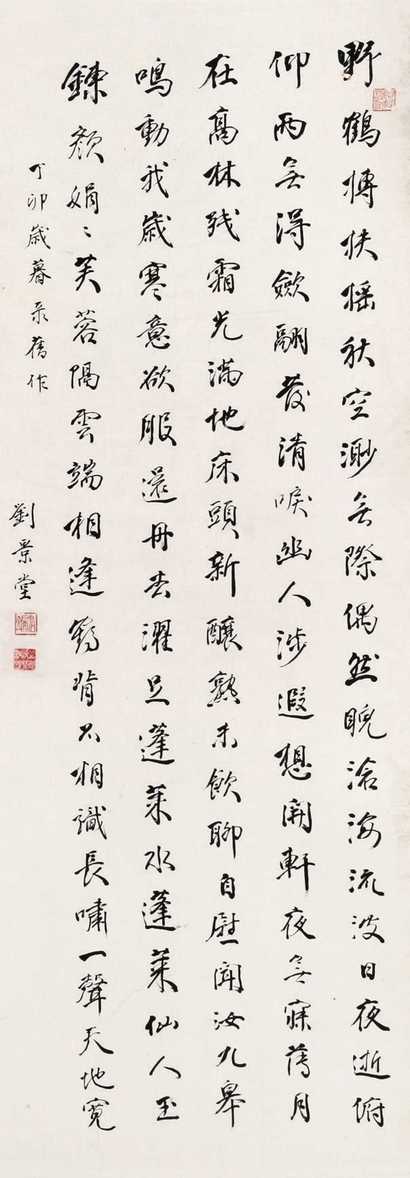 野鶴摶扶搖秋空渺無際偶然睨滄海流波日夜逝俯
仰而無得斂翮發清唳幽人涉遐想開軒夜無寐薄月
在高林殘霜光滿地床頭新釀熟未飲聊自慰聞汝九皋
鳴動我歲寒意欲服還丹去濯足蓬萊水蓬萊仙人玉
鍊顏娟〻芙蓉隔雲端相逢鶴背不相識長嘯一聲天地寬
丁卯歲暮录舊作
劉景堂